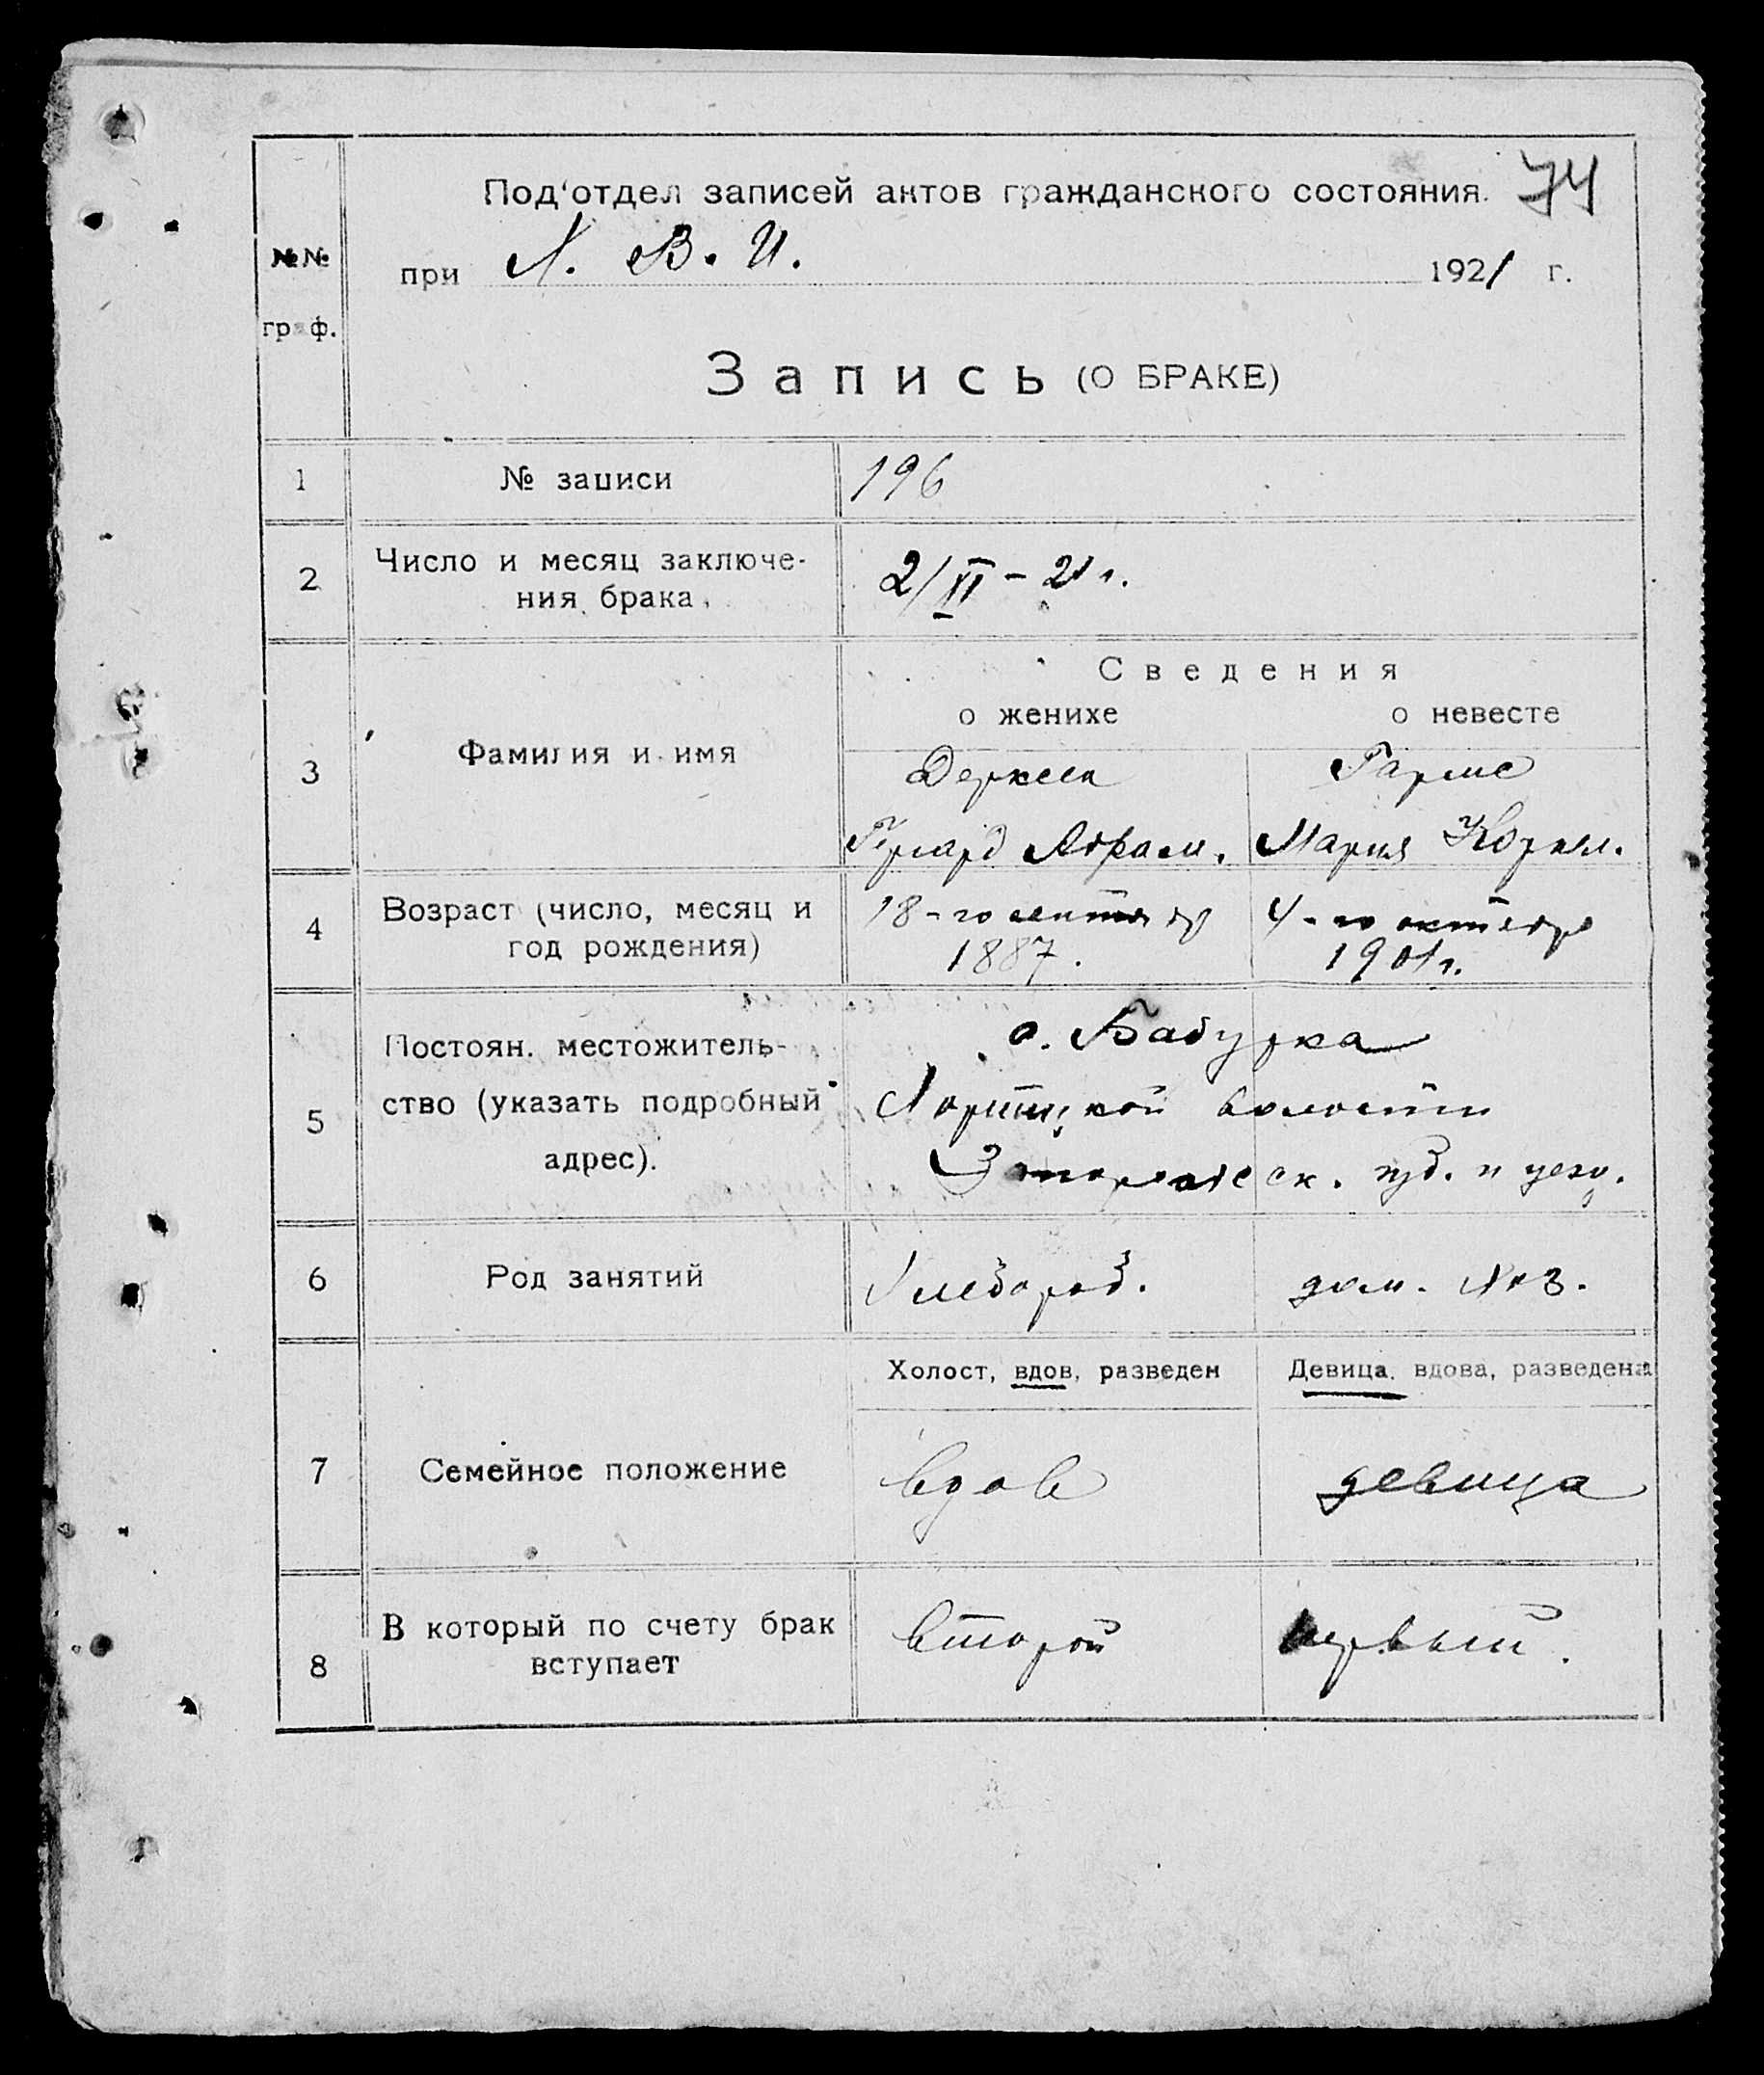 Под'отдел записей актов гражданского состояния. 74
№№ граф.
при Х. В. И. 1921 г.
Запись (О БРАКЕ)
1 № записи 196
2 Число и месяц заключе-
ния брака 2/XI – 21 г.
Сведения
о женихе о невесте
3 Фамилия и имя Дерксен Гармс
Гергард Абрам. Мария Корнел.
4 Возраст (число, месяц и 18-го сентября 4-го октября
год рождения) 1887. 1901 г.
с. Бабурка
5 Постоян. местожитель-
ство (указать подробный Хортицкой волости
адрес). Запорожск. губ. и уезд.
6 Род занятий Хлебороб. дом. хоз.
Холост, вдов, разведен Девица, вдова, разведена
7 Семейное положение вдов девица
8 В который по счету брак второй первый.
вступает